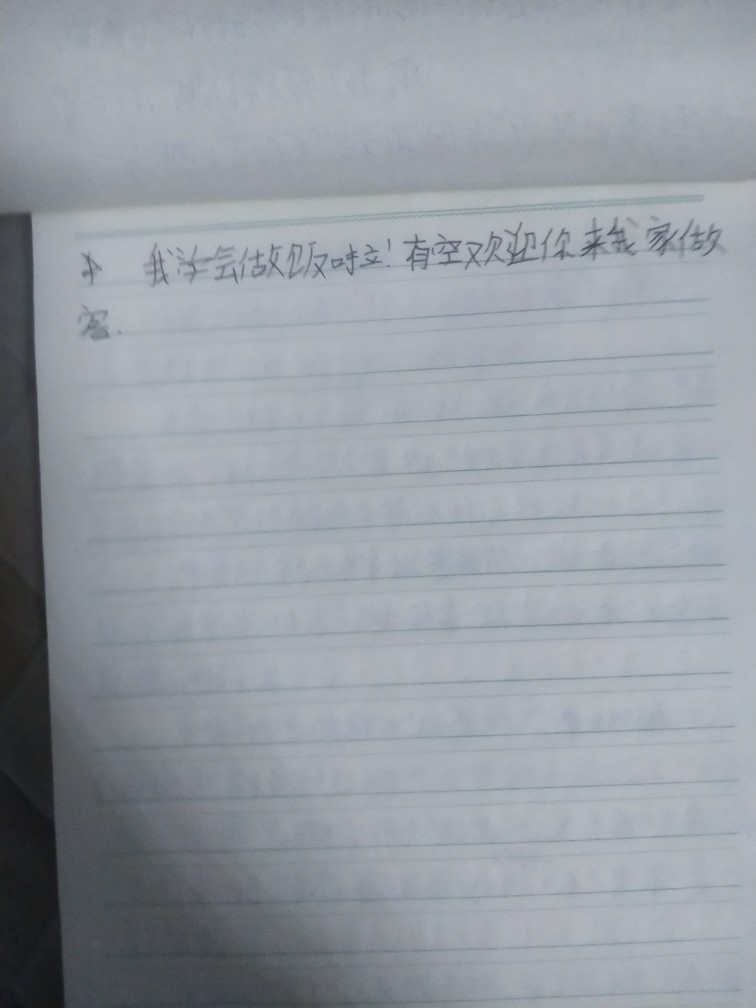 我学会做饭啦!有空欢迎你来我家做
客.